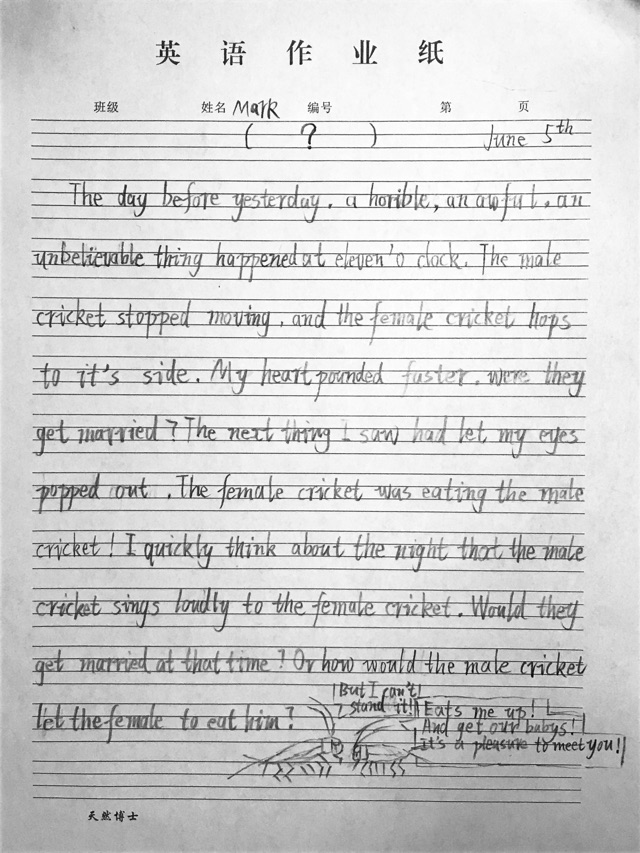 英语作业纸
班级 姓名 Mark 编号 第 页
( ? ) June 5th
The day before yesterday, a horible, an awful, an
unbelievable thing happened at eleven'o clock. The male
cricket stopped moving, and the female cricket hops
to it's side. My heart pounded faster. were they
get married? The next thing I saw had let my eyes
popped out. The female cricket was eating the male
cricket! I quickly think about the night that the male
cricket sings loudly to the female cricket. Would they
get married at that time? Or how would the male cricket
let the female to eat him?
But I can't
stand it!
Eats me up!
And get our babys!
It's a pleasure to meet you!
天然博士